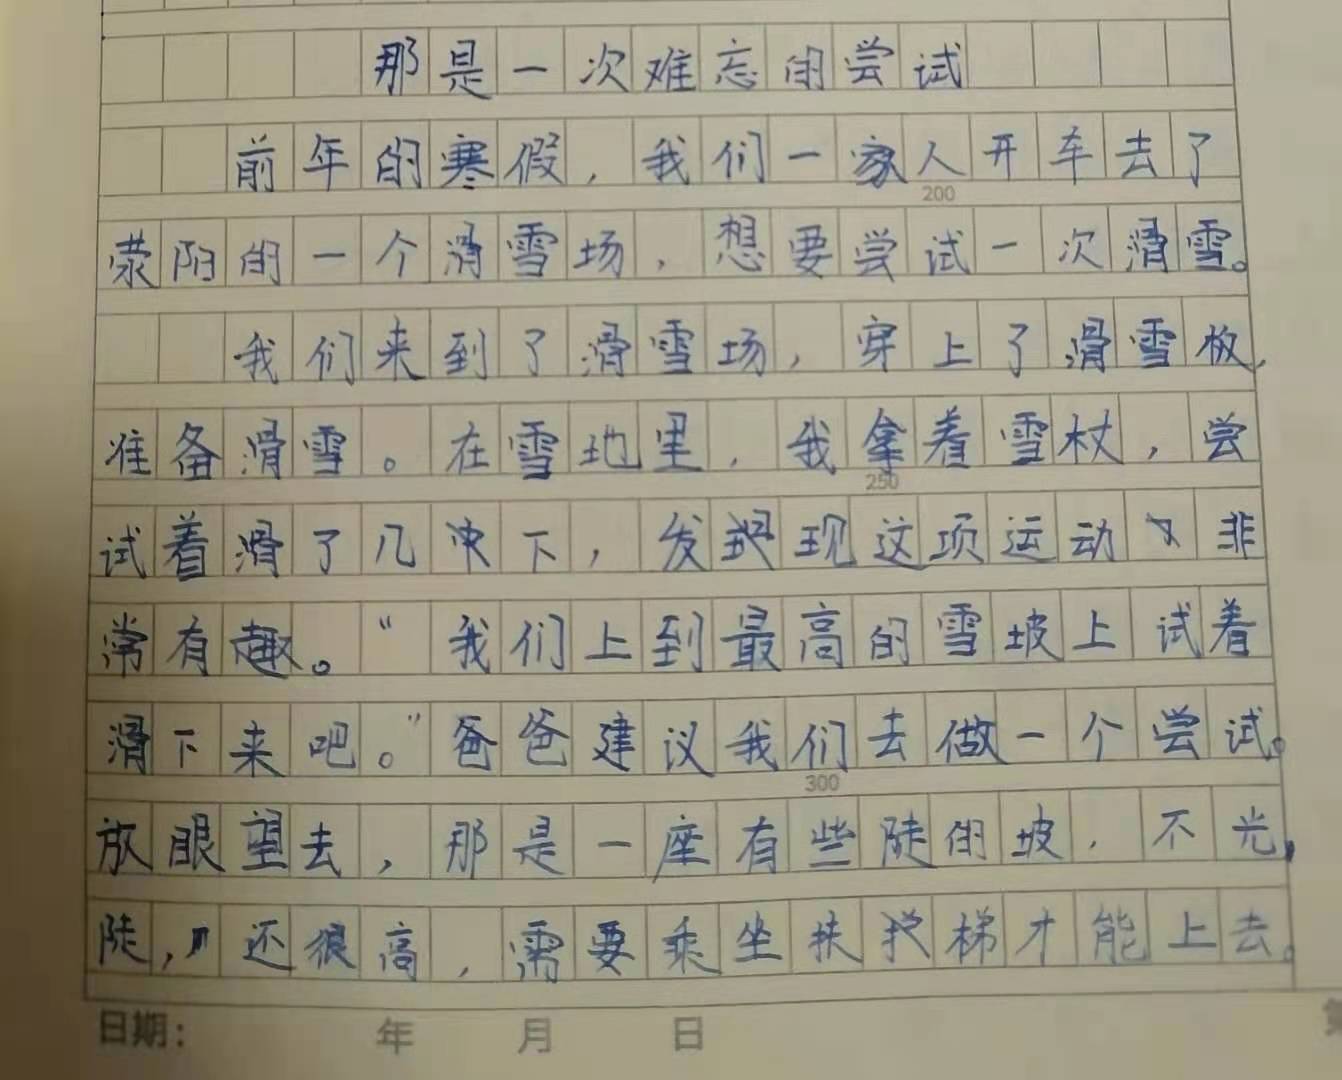 那是一次难忘的尝试
前年的寒假，我们一家人开车去了
200
荥阳的一个滑雪场，想要尝试一次滑雪。
我们来到了滑雪场，穿上了滑雪板，
准备滑雪。在雪地里，我拿着雪杖，尝
250
试着滑了几下，发现这项运动非
常有趣。“我们上到最高的雪坡上试着
滑下来吧。”爸爸建议我们去做一个尝试。
300
放眼望去，那是一座有些陡的坡，不光
陡，还很高，需要乘坐扶梯才能上去。
日期： 年 月 日